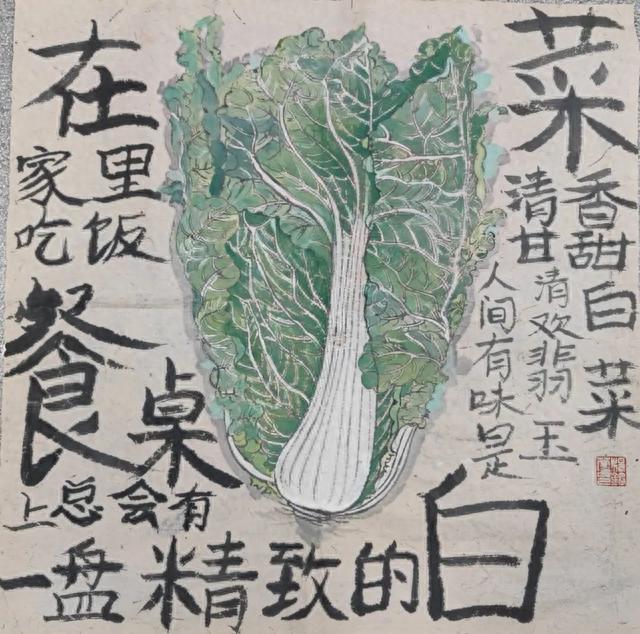 在
家里
吃饭
餐桌
上总会有
一盘精致的白
菜
清甘
香甜白菜
人间有味是
清欢翡玉